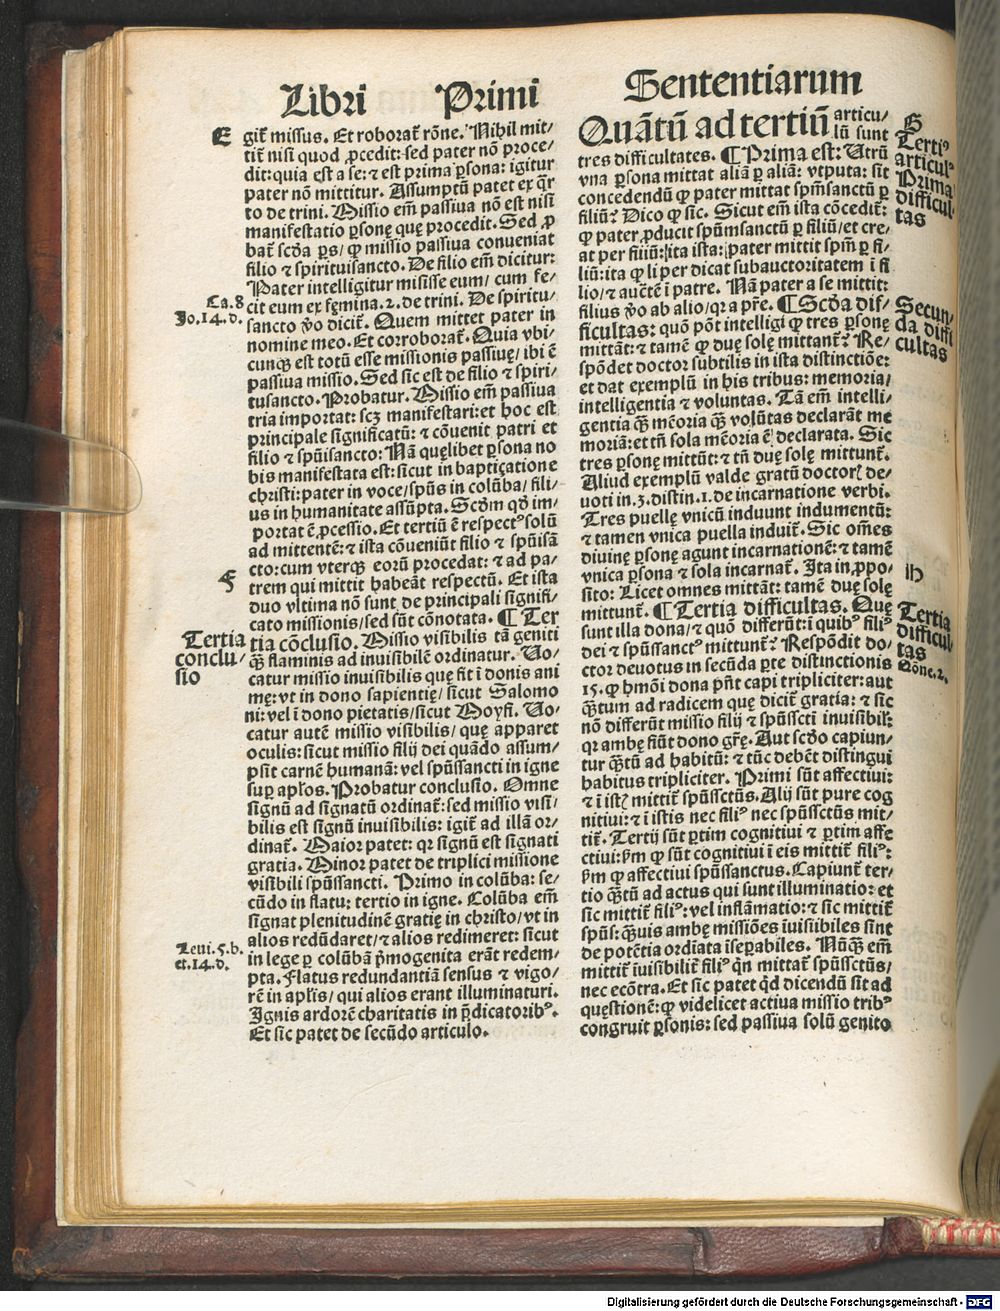 Libri Primi
Sententiarum
E
git̃ missus. Et roborat̃ rõne. Nihil mit-
tit̃ nisi quod ꝓcedit: sed pater nõ proce-
dit: quia est a se: ⁊ est prima ꝑsona: igitur
pater nõ mittitur. Assumptũ patet ex qr̃
to de trini. Missio em̃ passiua nõ est nisi
manifestatio ꝑsonę quę procedit. Sed ꝓ
bat̃ scďa ꝑs/ ꝙ missio passiua conueniat
filio ⁊ spirituisancto. De filio em̃ dicitur:
Pater intelligitur misisse eum/ cum fe-
Ca. 8
cit eum ex fęmina. 2. de trini. De spiritu-
Jo. 14. d.
sancto ṽo dicit̃. Quem mittet pater in
nomine meo. Et corroborat̃. Quia vbi-
cunqꝫ est totũ esse missionis passiuę/ ibi ẽ
passiua missio. Sed sic est de filio ⁊ spiri-
tusancto. Probatur. Missio em̃ passiua
tria importat: scꝫ manifestari: et hoc est
principale significatũ: ⁊ cõuenit patri et
filio ⁊ spũisancto: Nã quęlibet ꝑsona no
bis manifestata est: sicut in baptiçatione
christi: pater in voce/ spũs in colũba/ fili-
us in humanitate assũpta. Scďm qď im-
portat ẽ ꝓcessio. Et tertiũ ẽ respectꝰ solũ
ad mittentẽ: ⁊ ista cõueniũt filio ⁊ spũisã
cto: cum vterqꝫ eorũ procedat: ⁊ ad pa-
F
trem qui mittit habeãt respectũ. Et ista
duo vltima nõ sunt de principali signifi-
cato missionis/ sed sũt cõnotata. ¶ Ter
Tertia
conclu/
sio
tia cõclusio. Missio visibilis tã geniti
q̃ꝫ flaminis ad inuisibilẽ ordinatur. Uo-
catur missio inuisibilis quę fit ĩ donis ani
mę: vt in dono sapientię/ sicut Salomo
ni: vel ĩ dono pietatis/ sicut Moysi. Uo-
catur autẽ missio visibilis/ quę apparet
oculis: sicut missio filij dei quãdo assum-
psit carnẽ humanã: vel spũssancti in igne
suꝑ apľos. Probatur conclusio. Omne
signũ ad signatũ ordinat̃: sed missio visi/
bilis est signũ inuisibilis: igit̃ ad illã or-
dinat̃. Maior patet: qr signũ est signati
gratia. Minor patet de triplici missione
visibili spũssancti. Primo in colũba: se-
cũdo in flatu: tertio in igne. Colũba em̃
signat plenitudinẽ gratię in christo/ vt in
Leui. 5. b.
et. 14. d.
alios redũdaret/ ⁊ alios redimeret: sicut
in lege ꝑ colũbã p̃mogenita erãt redem-
pta. Flatus redundantiã sensus ⁊ vigo-
rẽ in apľis/ qui alios erant illuminaturi.
Ignis ardorẽ charitatis in p̃dicatoribꝰ.
Et sic patet de secũdo articulo.
Quãtũ ad tertiũ articu/
lũ sunt
G
Tertiꝰ
articulꝰ
Prima
difficul-
tas
tres difficultates. ¶ Prima est: Utrũ
vna ꝑsona mittat aliã ꝑ aliã: vtputa: sit
concedendũ ꝙ pater mittat spm̃sanctũ ꝑ
filiũ? Dico ꝙ sic. Sicut em̃ ista cõcedit̃:
ꝙ pater ꝓducit spũmsanctũ ꝑ filiũ/ et cre-
at per filiũ: ita ista: pater mittit spm̃ ꝑ fi-
liũ: ita ꝙ li per dicat subauctoritatem ĩ fi
lio/ ⁊ auctẽ ĩ patre. Nã pater a se mittit:
filius ṽo ab alio/ qr a pr̃e. ¶ Scďa dif-
Secun-
da diffi
cultas
ficultas: quõ põt intelligi ꝙ tres ꝑsonę
mittãt: ⁊ tamẽ ꝙ duę solę mittant̃? Re-
spõdet doctor subtilis in ista distinctiõe:
et dat exemplũ in his tribus: memoria/
intelligentia ⁊ voluntas. Tã em̃ intelli-
gentia q̃ꝫ mẽoria q̃ꝫ volũtas declarãt me
moriã: et tñ sola mẽoria ẽ declarata. Sic
tres ꝑsonę mittũt: ⁊ tñ duę solę mittunt̃.
Aliud exemplũ valde gratũ doctorꝝ de-
uoti in. 3. distin. 1. de incarnatione verbi.
Tres puellę vnicũ induunt indumentũ:
⁊ tamen vnica puella induit̃. Sic om̃es
diuinę ꝑsonę agunt incarnationẽ: ⁊ tamẽ
H
vnica ꝑsona ⁊ sola incarnat̃. Ita in ꝓpo-
sito: Licet omnes mittãt: tamẽ duę solę
mittunt̃. ¶ Tertia difficultas. Quę
Tertia
difficul-
tas
Cõne. 2.
sunt illa dona/ ⁊ quõ differũt: ĩ quibꝰ filiꝰ
dei ⁊ spũssanctꝰ mittunt̃? Respõdit do-
ctor deuotus in secũda ꝑte distinctionis
15. ꝙ hm̃oi dona pñt capi tripliciter: aut
q̃ꝫtum ad radicem quę dicit̃ gratia: ⁊ sic
nõ differũt missio filij ⁊ spũsscti inuisibiľ:
qr ambę fiũt dono gr̃ę. Aut scďo capiun-
tur q̃ꝫtũ ad habitũ: ⁊ tũc debẽt distingui
habitus tripliciter. Primi sũt affectiui:
⁊ ĩ istꝭ mittit̃ spũssctũs. Alij sũt pure cog
nitiui: ⁊ ĩ istis nec filiꝰ nec spũssctũs mit/
tit̃. Tertij sũt ꝑtim cognitiui ⁊ ꝑtim affe
ctiui: ẜm ꝙ sũt cognitiui ĩ eis mittit̃ filiꝰ:
ẜm ꝙ affectiui spũssanctus. Capiunt̃ ter-
tio q̃ꝫtũ ad actus qui sunt illuminatio: et
sic mittit̃ filiꝰ: vel inflãmatio: ⁊ sic mittit̃
spũs: q̃ꝫuis ambę missiões ĩuisibiles sint
de potẽtia ordĩata ĩseꝑabiles. Nũq̃ꝫ em̃
mittit̃ ĩuisibiliť filiꝰ qñ mittat̃ spũssctũs/
nec ecõtra. Et sic patet qď dicendũ sit ad
quęstionẽ: ꝙ videlicet actiua missio tribꝰ
congruit ꝑsonis: sed passiua solũ genito
Digitalisierung gefördert durch die Deutsche Forschungsgemeinschaft - DFG